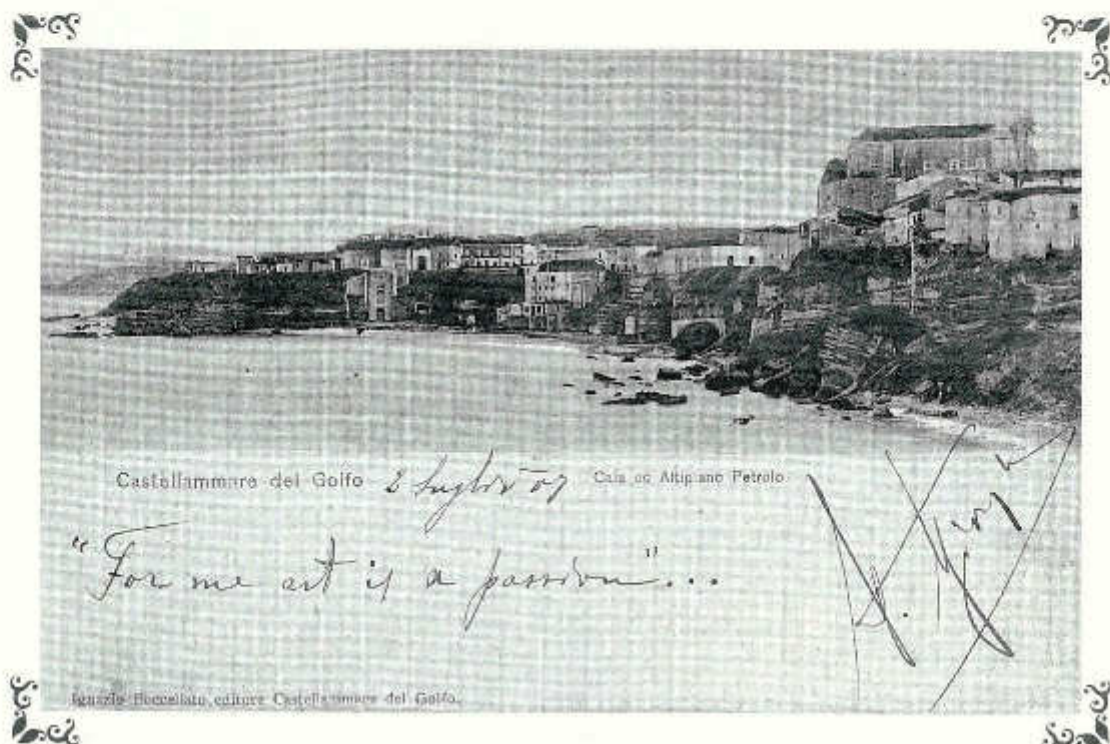 Castellammare del Golfo 2 Luglio 07 Cala ed Altipiano Petrolo
"For me art is a passion"...
Ignazio editore Castellammare del Golfo.